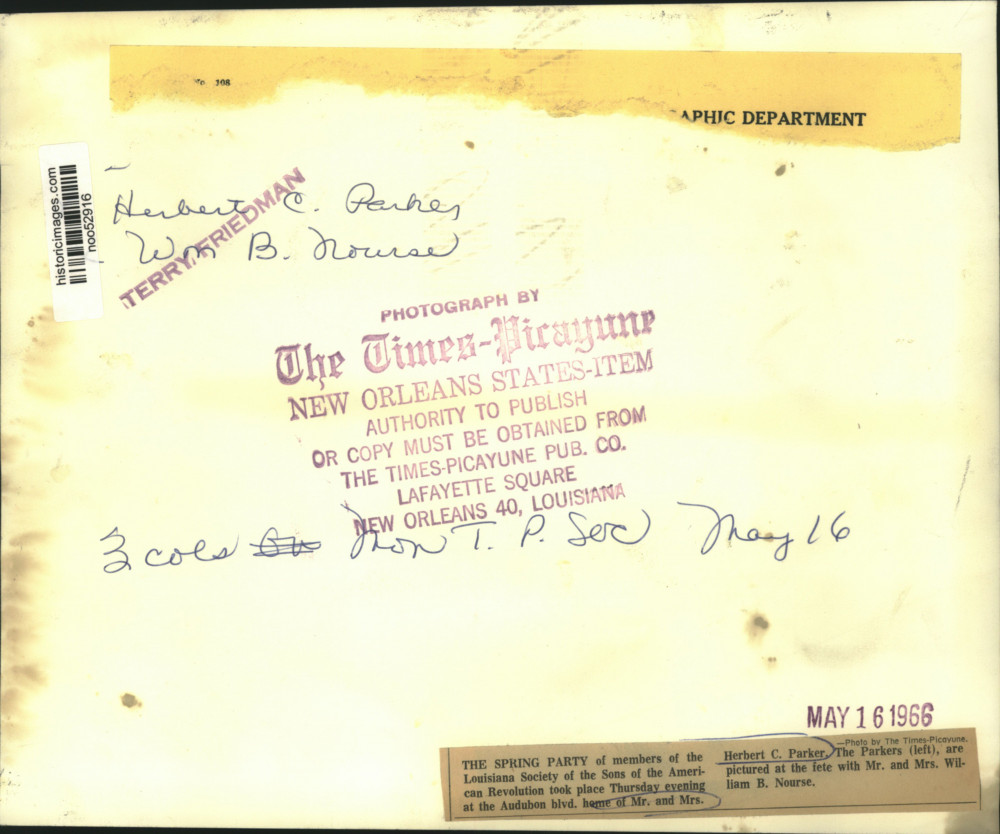 No. 108
APHIC DEPARTMENT
historicimages.com
noo52916
Herbert C. Parker
Wm B. Nourse
TERRY FRIEDMAN
PHOTOGRAPH BY
The Times-Picayune
NEW ORLEANS STATES-ITEM
AUTHORITY TO PUBLISH
OR COPY MUST BE OBTAINED FROM
THE TIMES-PICAYUNE PUB. CO.
LAFAYETTE SQUARE
NEW ORLEANS 40, LOUISIANA
3 cols Mon T. P. Soc May 16
MAY 16 1966
—Photo by The Times-Picayune.
THE SPRING PARTY of members of the
Louisiana Society of the Sons of the Ameri-
can Revolution took place Thursday evening
at the Audubon blvd. home of Mr. and Mrs.
Herbert C. Parker. The Parkers (left), are
pictured at the fete with Mr. and Mrs. Wil-
liam B. Nourse.